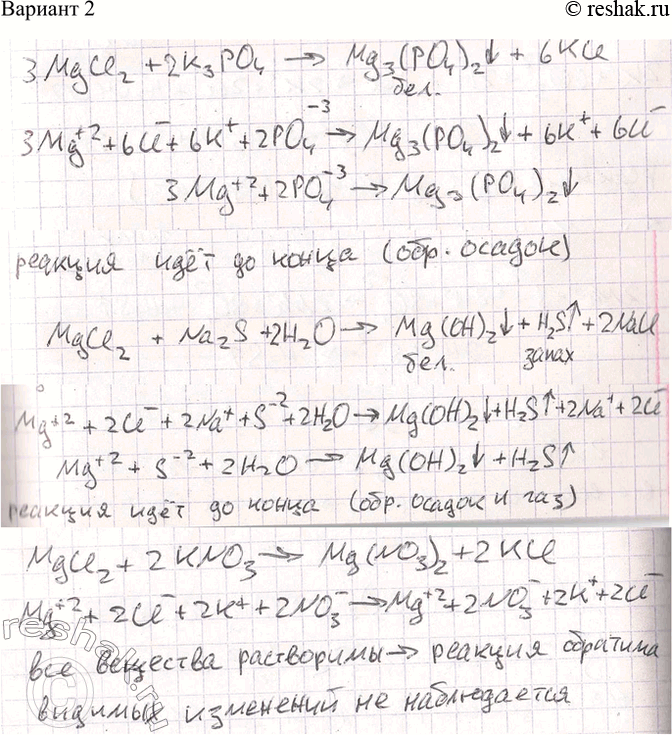 Вариант 2
© reshak.ru
3MgCl₂ + 2K₃PO₄ → Mg₃(PO₄)₂↓ + 6KCl
бел.
3Mg⁺² + 6Cl⁻ + 6K⁺ + 2PO₄⁻³ → Mg₃(PO₄)₂↓ + 6K⁺ + 6Cl⁻
3Mg⁺² + 2PO₄⁻³ → Mg₃(PO₄)₂↓
реакция идёт до конца (обр. осадок)
MgCl₂ + Na₂S + 2H₂O → Mg(OH)₂↓ + H₂S↑ + 2NaCl
бел. запах
Mg⁺² + 2Cl⁻ + 2Na⁺ + S⁻² + 2H₂O → Mg(OH)₂↓ + H₂S↑ + 2Na⁺ + 2Cl⁻
Mg⁺² + S⁻² + 2H₂O → Mg(OH)₂↓ + H₂S↑
реакция идёт до конца (обр. осадок и газ)
MgCl₂ + 2KNO₃ → Mg(NO₃)₂ + 2KCl
Mg⁺² + 2Cl⁻ + 2K⁺ + 2NO₃⁻ → Mg⁺² + 2NO₃⁻ + 2K⁺ + 2Cl⁻
все вещества растворимы → реакция обратима
видимых изменений не наблюдается
© reshak.ru